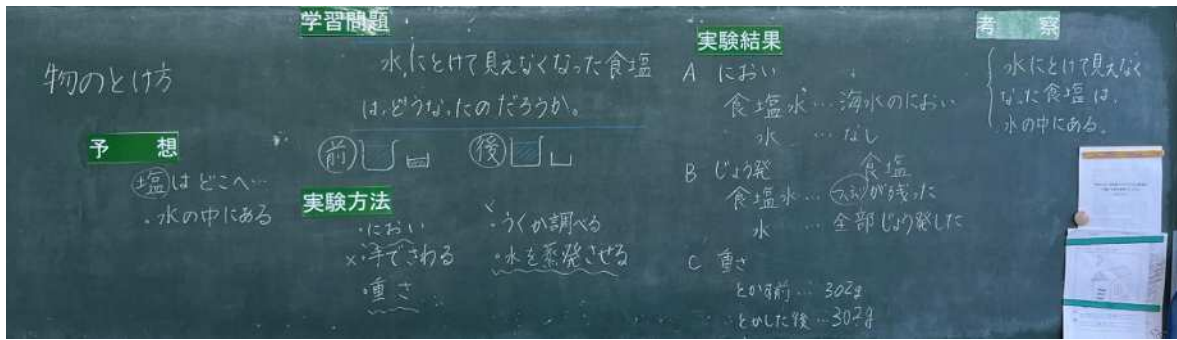 物のとけ方
予 想
塩はどこへ…
・水の中にある
学習問題
水にとけて見えなくなった食塩
は、どうなったのだろうか。
前
後
実験方法
・におい
×・手でさわる
・重さ
・うくか調べる
・水を蒸発させる
実験結果
A におい
食塩水…海水のにおい
水 …なし
B じょう発
食塩
食塩水…つぶが残った
水 …全部じょう発した
C 重さ
とかす前…302g
とかした後…302g
考 察
水にとけて見えなく
なった食塩は、
水の中にある。